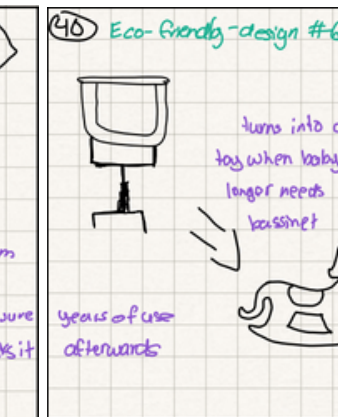 40 Eco-friendly-design #6
turns into a
toy when baby
longer needs
bassinet
years of use
afterwards